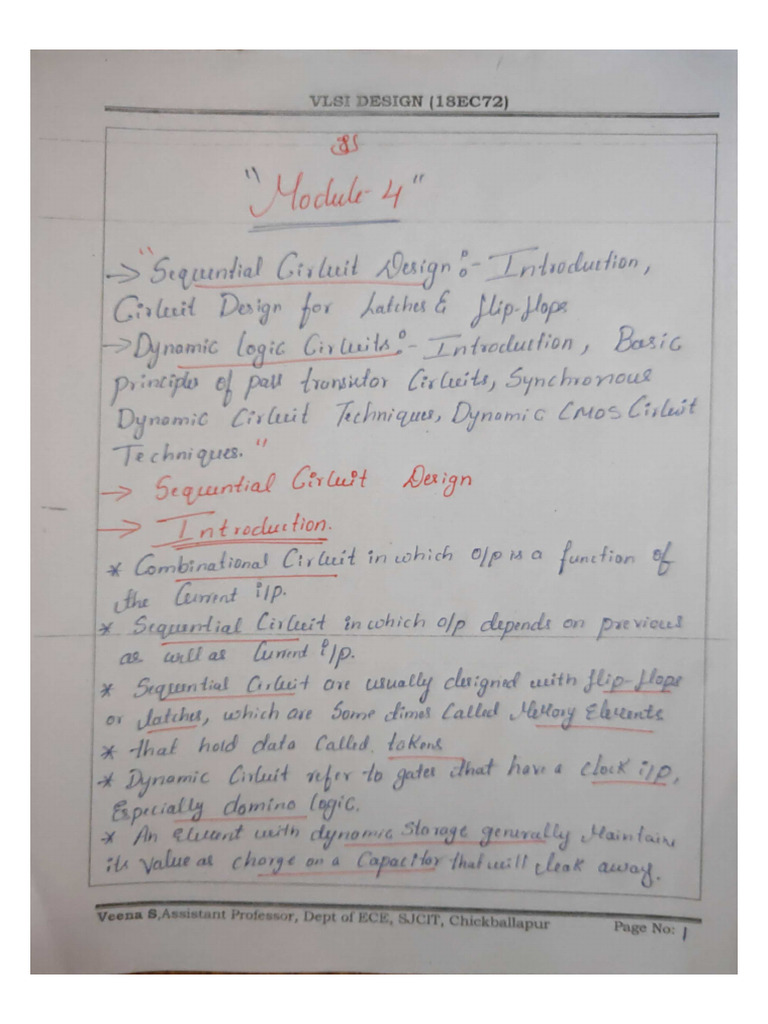 VLSI DESIGN (18EC72)
"Module-4"
→ "Sequential Circuit Design:- Introduction,
Circuit Design for Latches & flip-flops
→ Dynamic Logic Circuits:- Introduction, Basic
principles of pass transistor Circuits, Synchronous
Dynamic Circuit Techniques, Dynamic CMOS Circuit
Techniques."
→ Sequential Circuit Design
→ Introduction.
* Combinational Circuit in which o/p is a function of
the Current i/p.
* Sequential Circuit in which o/p depends on previous
as well as Current i/p.
* Sequential Circuit are usually designed with flip-flops
or latches, which are Some times Called Memory Elements
* that hold data Called tokens
* Dynamic Circuit refer to gates that have a clock i/p,
Especially domino logic.
* An Element with dynamic Storage generally Maintain
its value as charge on a Capacitor that will leak away.
Veena S,Assistant Professor, Dept of ECE, SJCIT, Chickballapur
Page No: 1